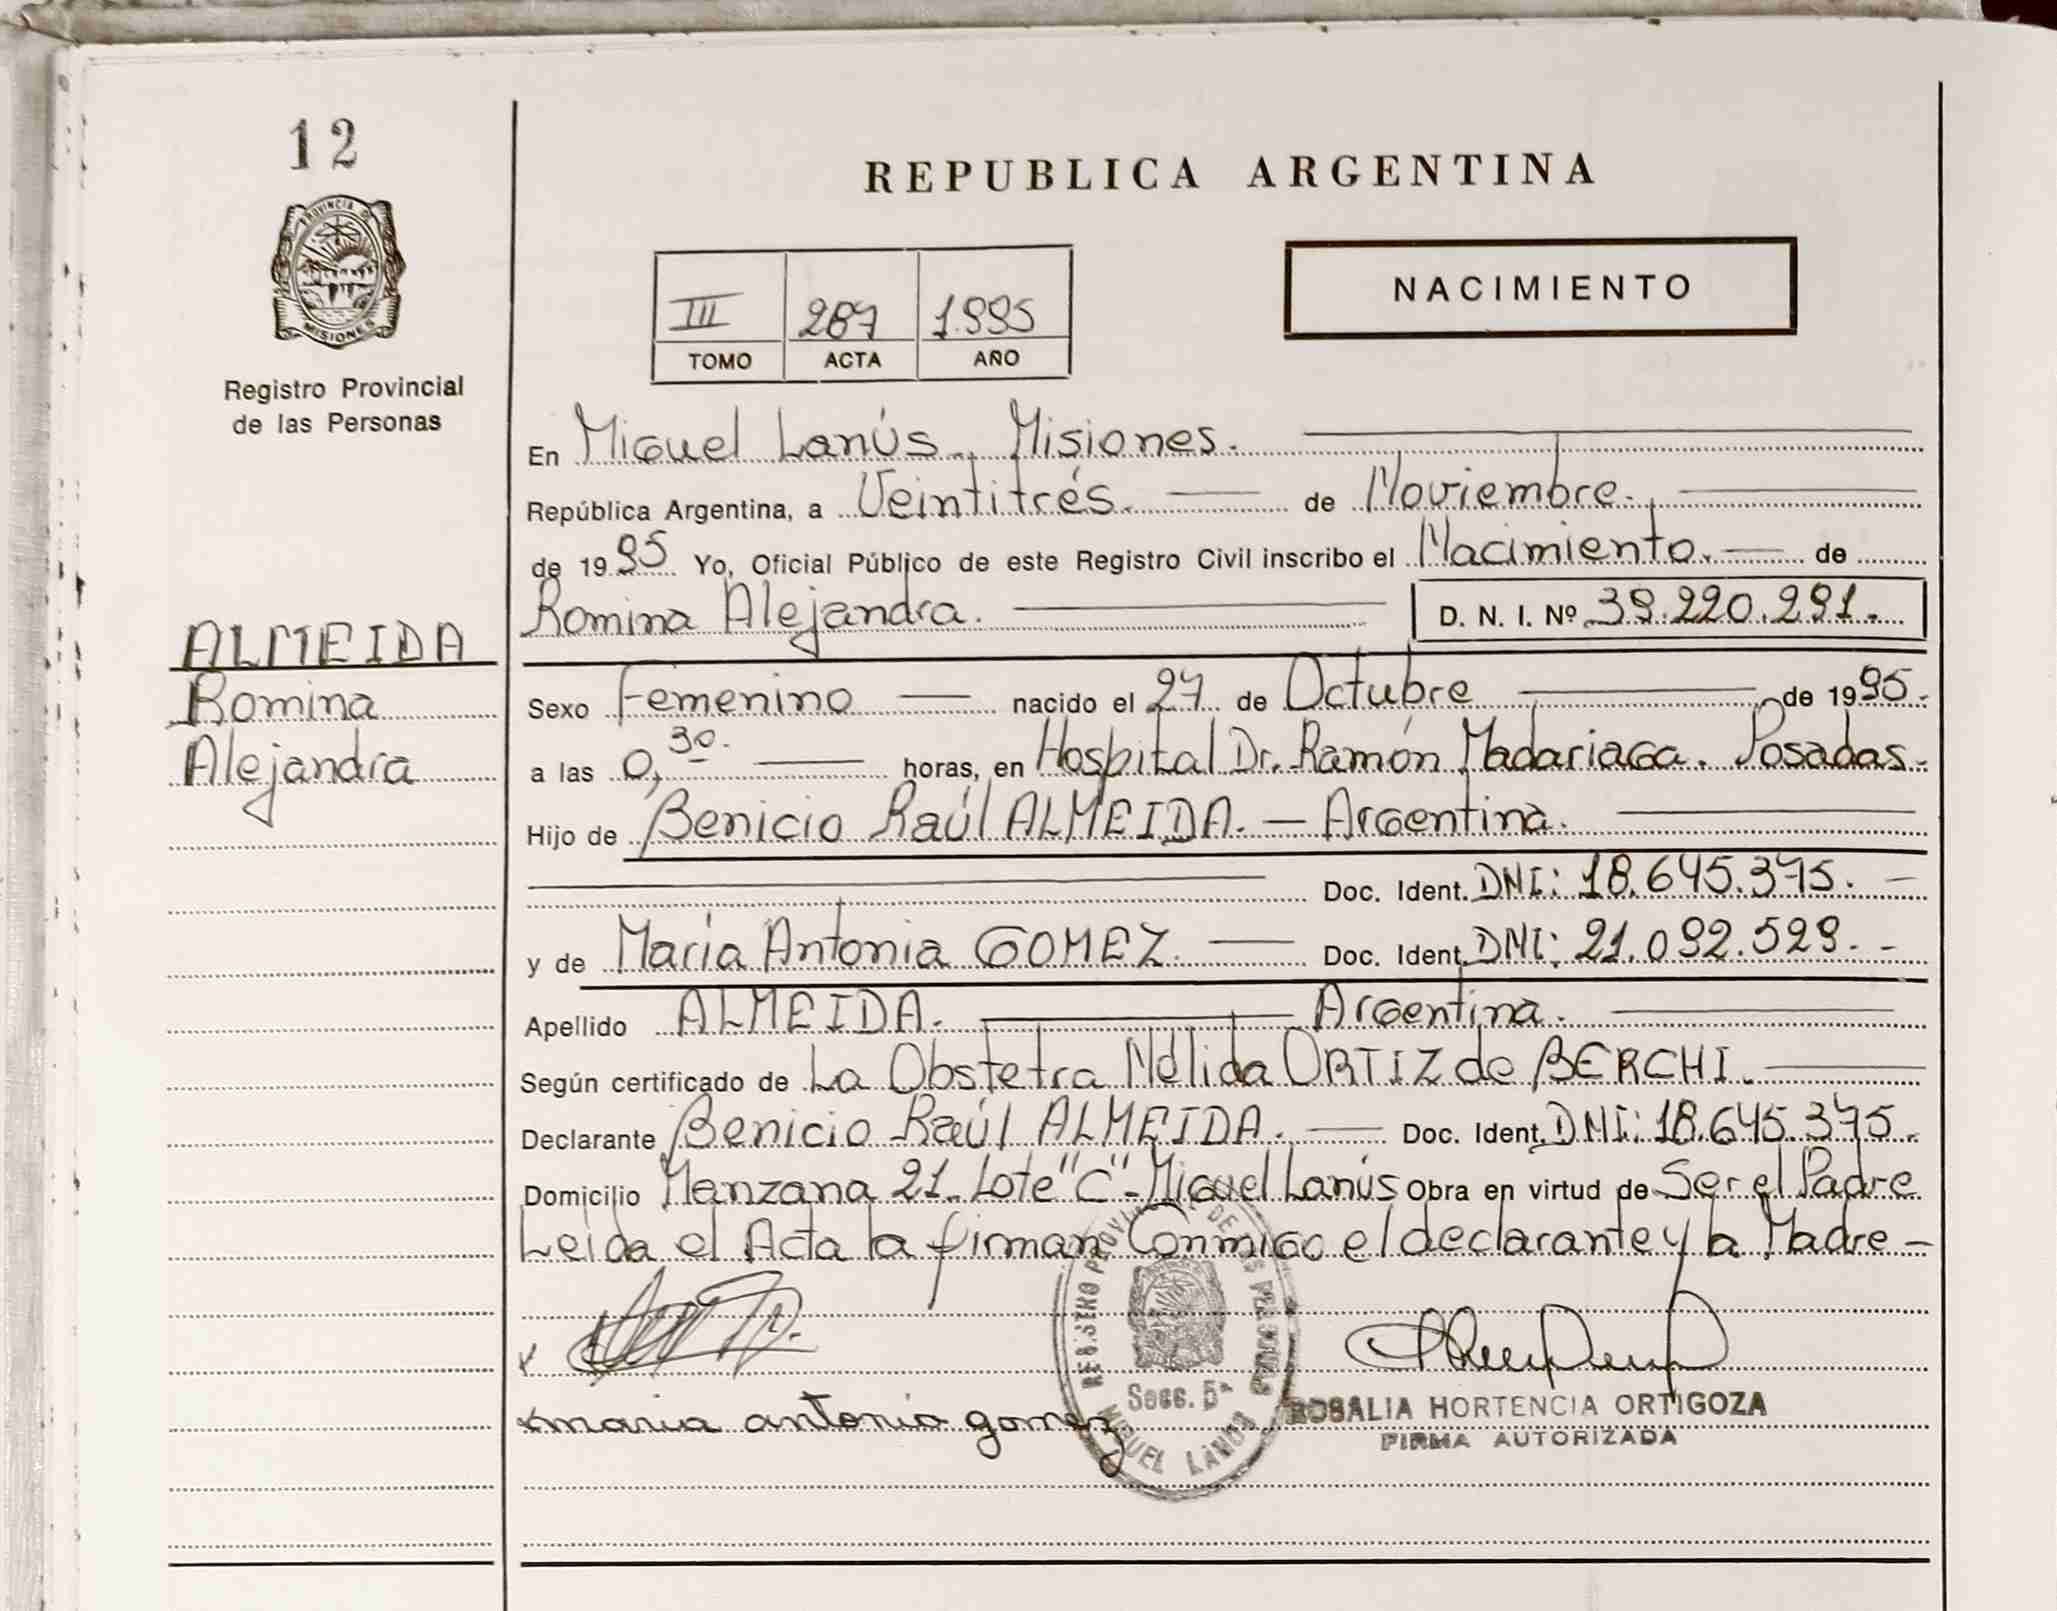 12
PROVINCIA DE
MISIONES
Registro Provincial
de las Personas
ALMEIDA
Romina
Alejandra
REPUBLICA ARGENTINA
III 287 1.995
TOMO ACTA AÑO
NACIMIENTO
En Miguel Lanús, Misiones.
República Argentina, a Veintitrés. de Noviembre.
de 1995 Yo, Oficial Público de este Registro Civil inscribo el Nacimiento. de
Romina Alejandra. D. N. I. Nº 39.220.291.
Sexo Femenino nacido el 27 de Octubre de 1995.
a las 0,30. horas, en Hospital Dr. Ramón Madariaga. Posadas.
Hijo de Benicio Raúl ALMEIDA. — Argentina.
Doc. Ident. DNI: 18.645.375. —
y de María Antonia GOMEZ. Doc. Ident. DNI: 21.092.529. -
Apellido ALMEIDA. Argentina.
Según certificado de La Obstetra Nélida ORTIZ de BERCHI.
Declarante Benicio Raúl ALMEIDA. Doc. Ident. DNI: 18.645.375.
Domicilio Manzana 21. Lote "C" - Miguel Lanús Obra en virtud de Ser el Padre
Leida el Acta la firman Conmigo el declarante y la Madre —
REGISTRO PROVINCIAL DE LAS PERSONAS
Secc. 5ª
MIGUEL LANUS
x maria antonia gomez
ROSALIA HORTENCIA ORTIGOZA
FIRMA AUTORIZADA